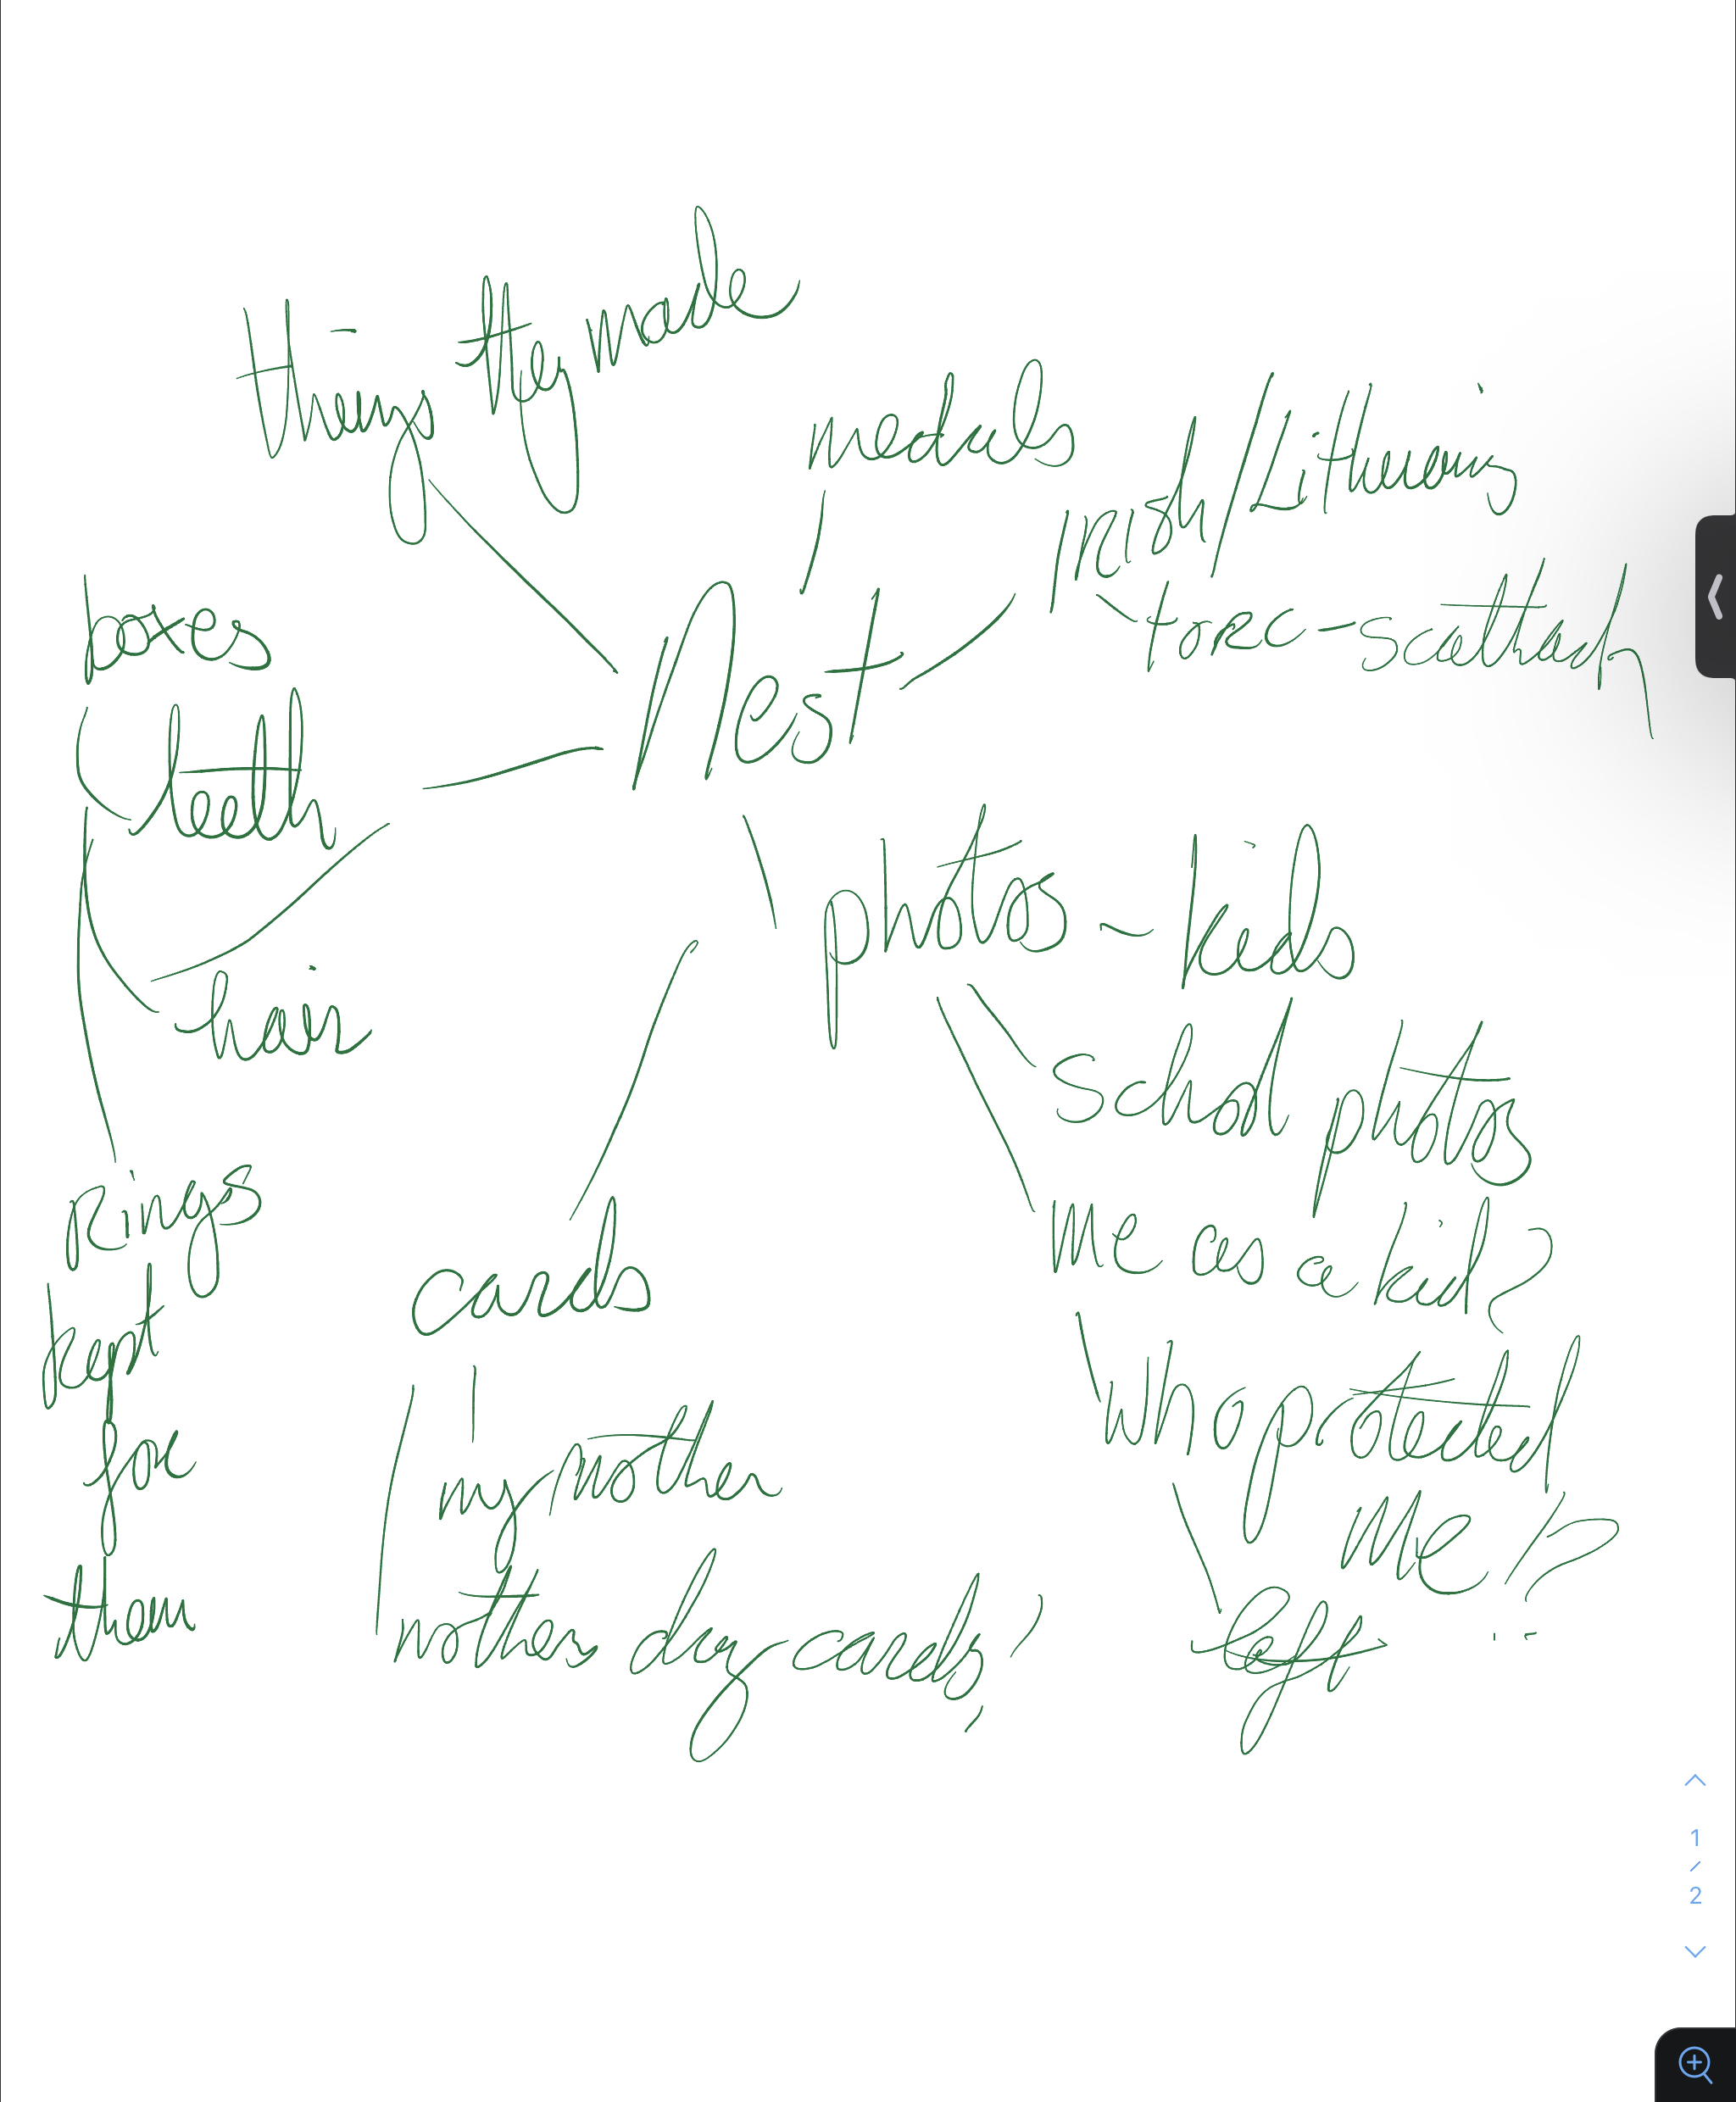 things they made
medals
Irish/Lithuanian
torc - scattered
boxes
Nest
teeth
hair
photos - kids
school photos
me as a kid?
who protected
me!?
Rings
kept
for
them
cards
my mother
mothers day cards,
1
/
2